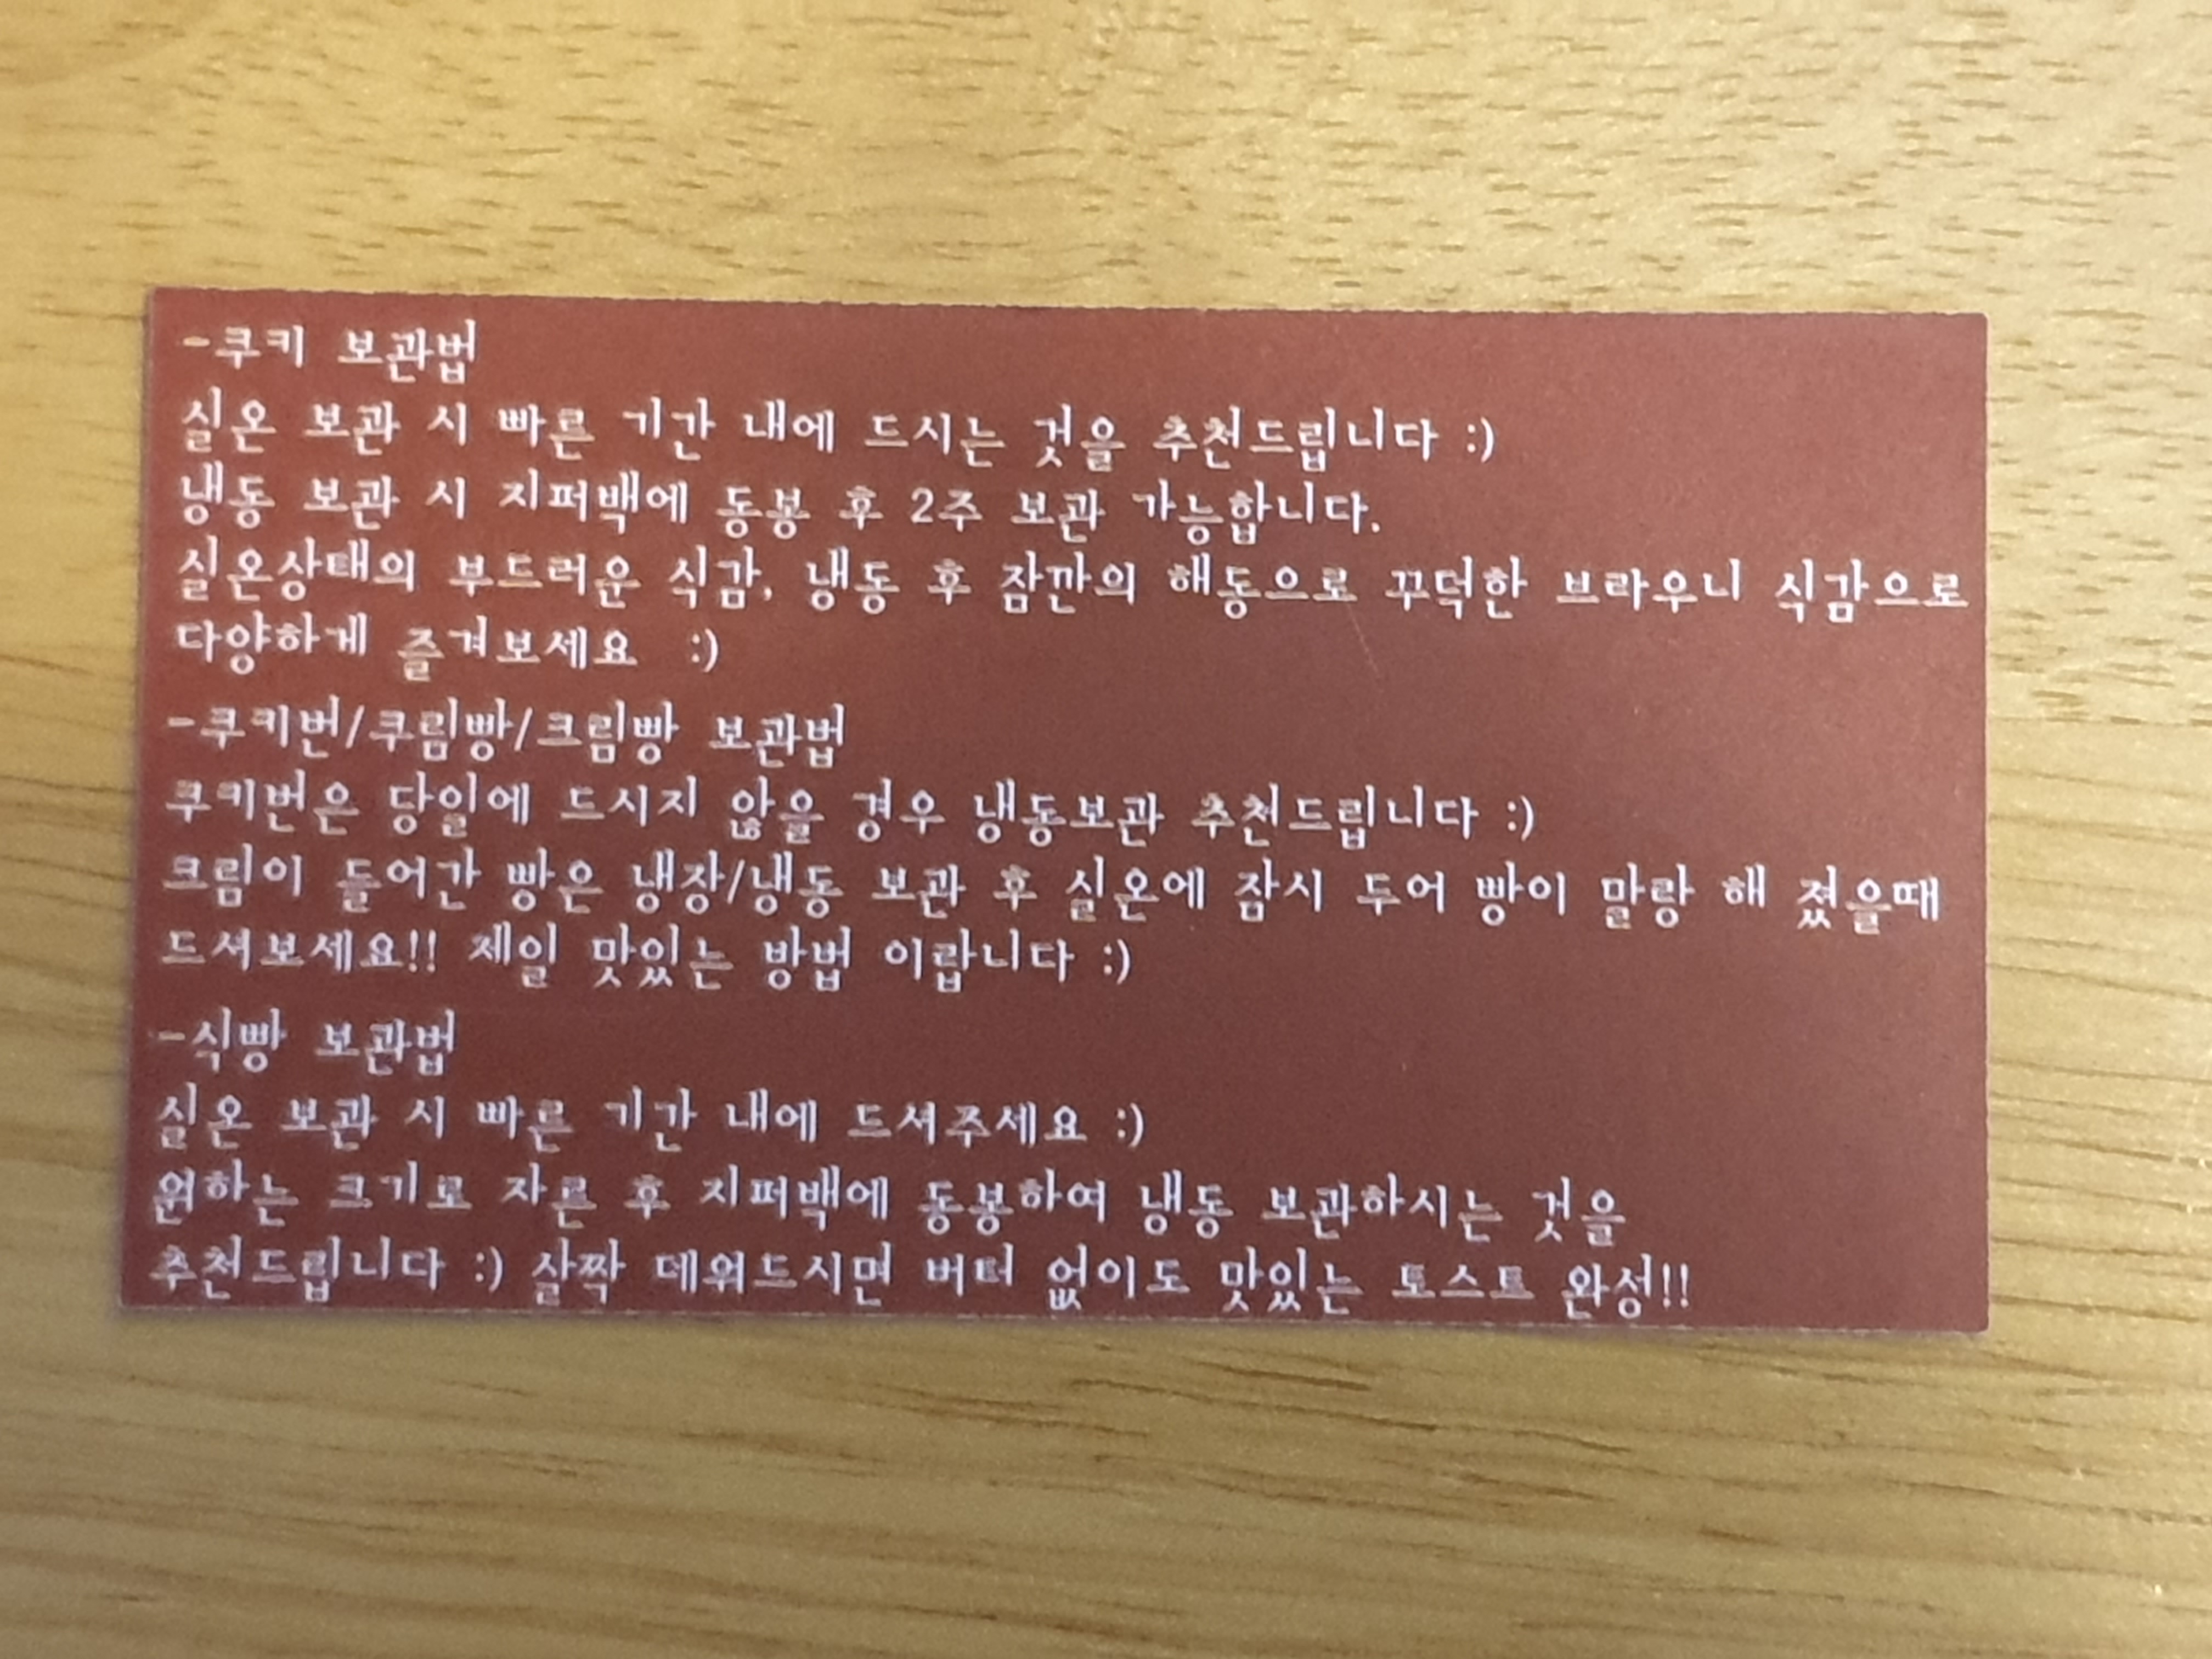 -쿠키 보관법
실온 보관 시 빠른 기간 내에 드시는 것을 추천드립니다 :)
냉동 보관 시 지퍼백에 동봉 후 2주 보관 가능합니다.
실온상태의 부드러운 식감, 냉동 후 잠깐의 해동으로 꾸덕한 브라우니 식감으로
다양하게 즐겨보세요 :)
-쿠키번/쿠림빵/크림빵 보관법
쿠키번은 당일에 드시지 않을 경우 냉동보관 추천드립니다 :)
크림이 들어간 빵은 냉장/냉동 보관 후 실온에 잠시 두어 빵이 말랑 해 졌을때
드셔보세요!! 제일 맛있는 방법 이랍니다 :)
-식빵 보관법
실온 보관 시 빠른 기간 내에 드셔주세요 :)
원하는 크기로 자른 후 지퍼백에 동봉하여 냉동 보관하시는 것을
추천드립니다 :) 살짝 데워드시면 버터 없이도 맛있는 토스트 완성!!